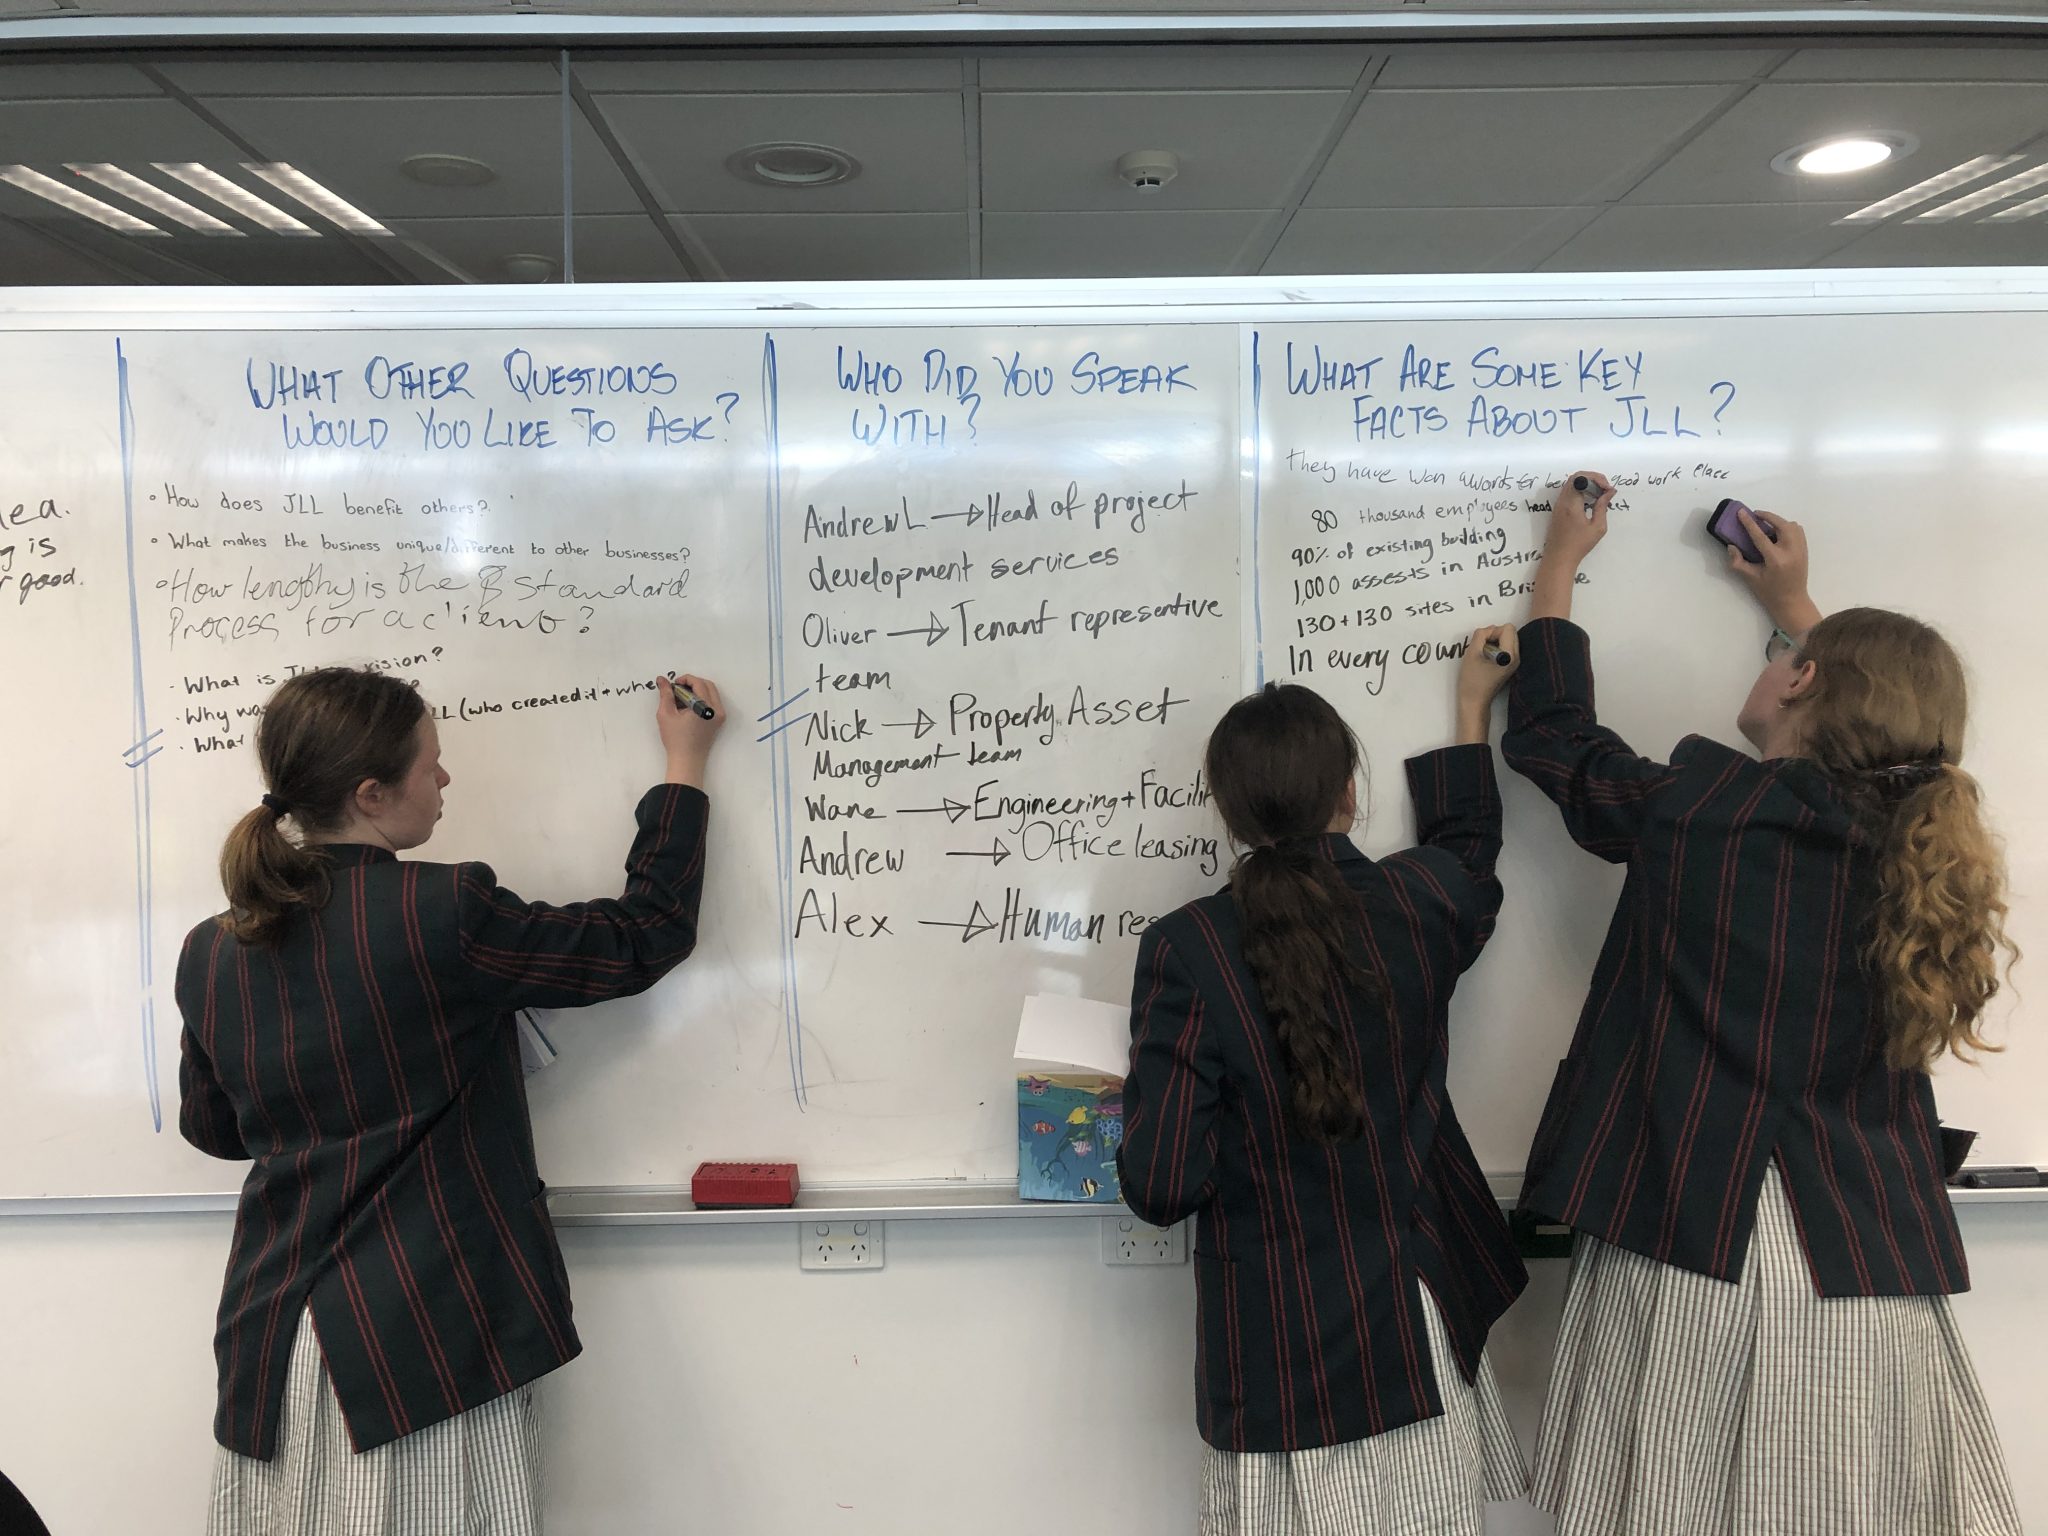 lea.
g is
r good.
WHAT OTHER QUESTIONS
WOULD YOU LIKE TO ASK?
• How does JLL benefit others?
• What makes the business unique/different to other businesses?
• How lengthy is the standard
Process for a client?
• What is JLL vision?
• Why wa LL (who created it + when?
• What
WHO DID YOU SPEAK
WITH?
Andrew L → Head of project
development services
Oliver → Tenant representive
team
Nick → Property Asset
Management team
Wane → Engineering + Facilit
Andrew → Office leasing
Alex → Human res
WHAT ARE SOME KEY
FACTS ABOUT JLL?
they have won awards for being good work place
80 thousand employees head
90% of existing building
1,000 assests in Austra
130 + 130 sites in Bris ne
In every count